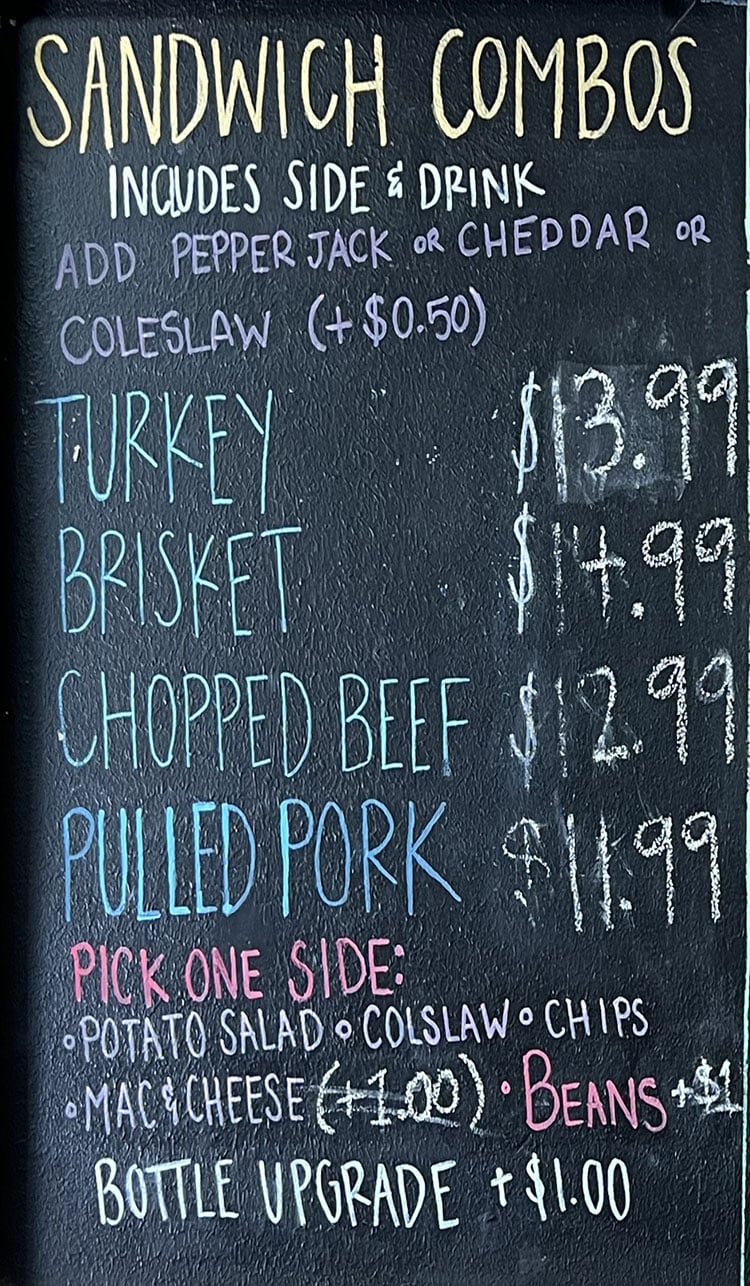 SANDWICH COMBOS
INCLUDES SIDE & DRINK
ADD PEPPER JACK OR CHEDDAR OR
COLESLAW (+$0.50)
TURKEY $13.99
BRISKET $14.99
CHOPPED BEEF $12.99
PULLED PORK $11.99
PICK ONE SIDE:
•POTATO SALAD •COLSLAW •CHIPS
•MAC & CHEESE (+1.00) •BEANS +$1
BOTTLE UPGRADE +$1.00